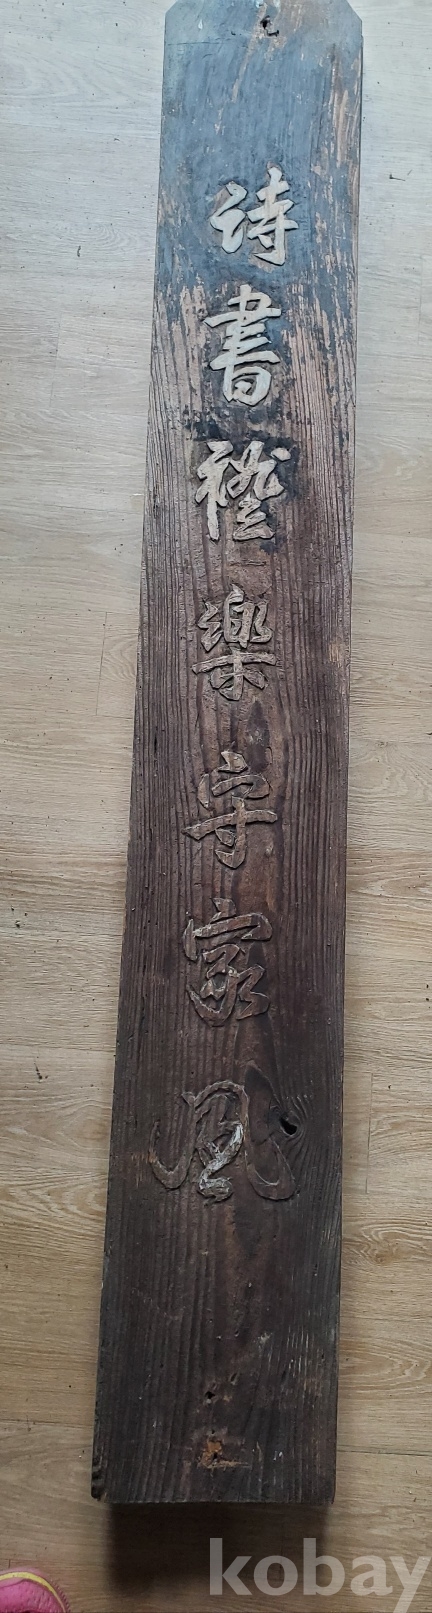 詩書禮樂守家風
kobay